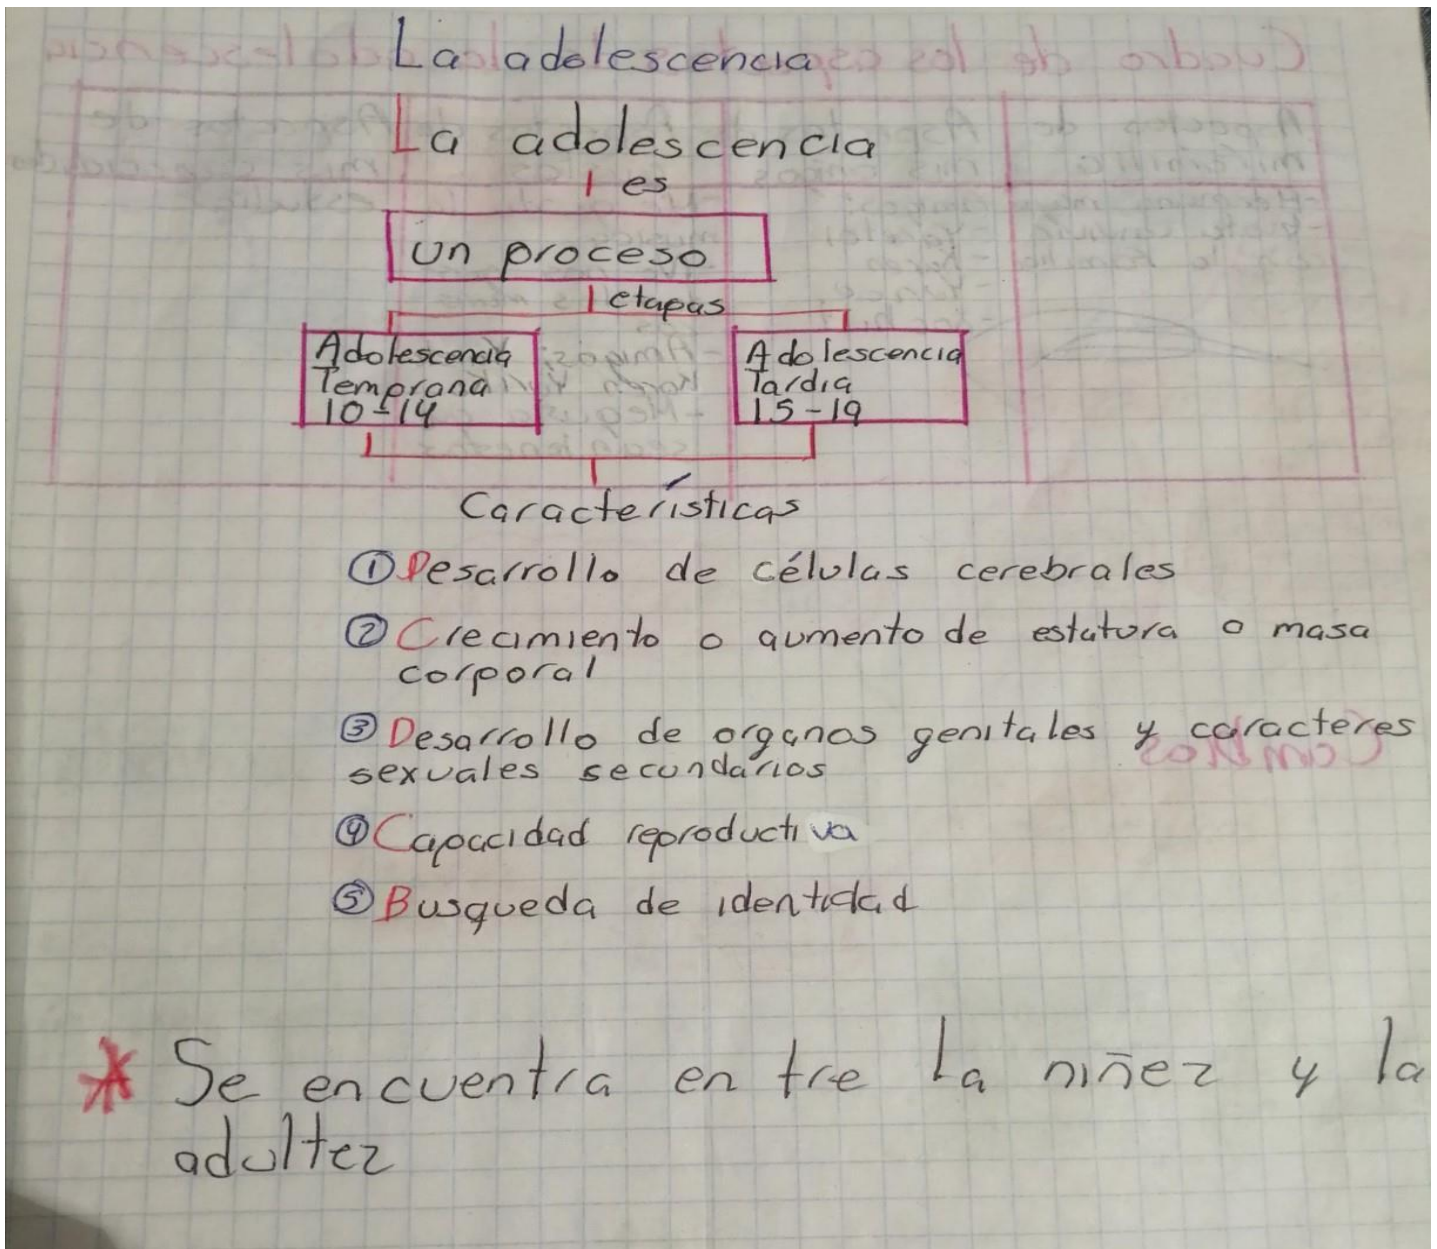 La adolescencia
La adolescencia
es
un proceso
etapas
Adolescencia
Temprana
10-14
Adolescencia
Tardia
15-19
Características
① Desarrollo de células cerebrales
② Crecimiento o aumento de estatura o masa
corporal
③ Desarrollo de organos genitales y caracteres
sexuales secundarios
④ Capacidad reproductiva
⑤ Busqueda de identidad
* Se encuentra en tre la niñez y la
adultez